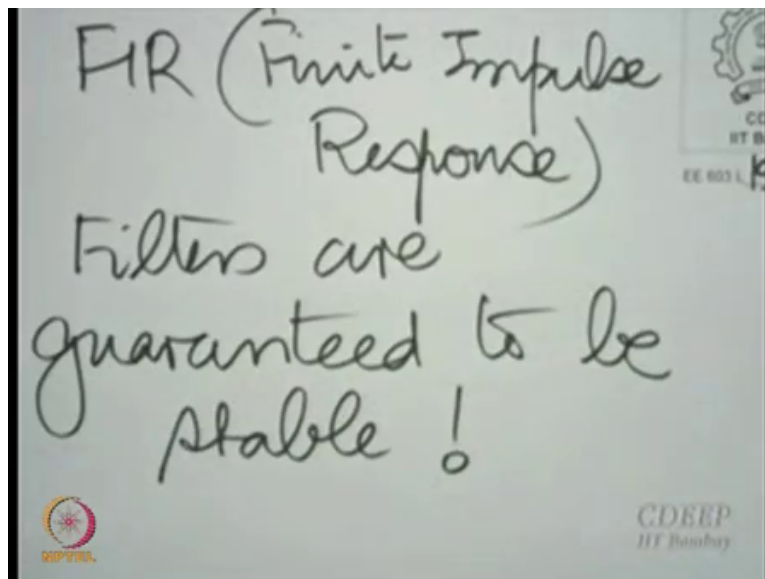 FIR (Finite Impulse
Response)
Filters are
guaranteed to be
stable!
CD
IIT B
EE 603 L
NPTEL
CDEEP
IIT Bombay